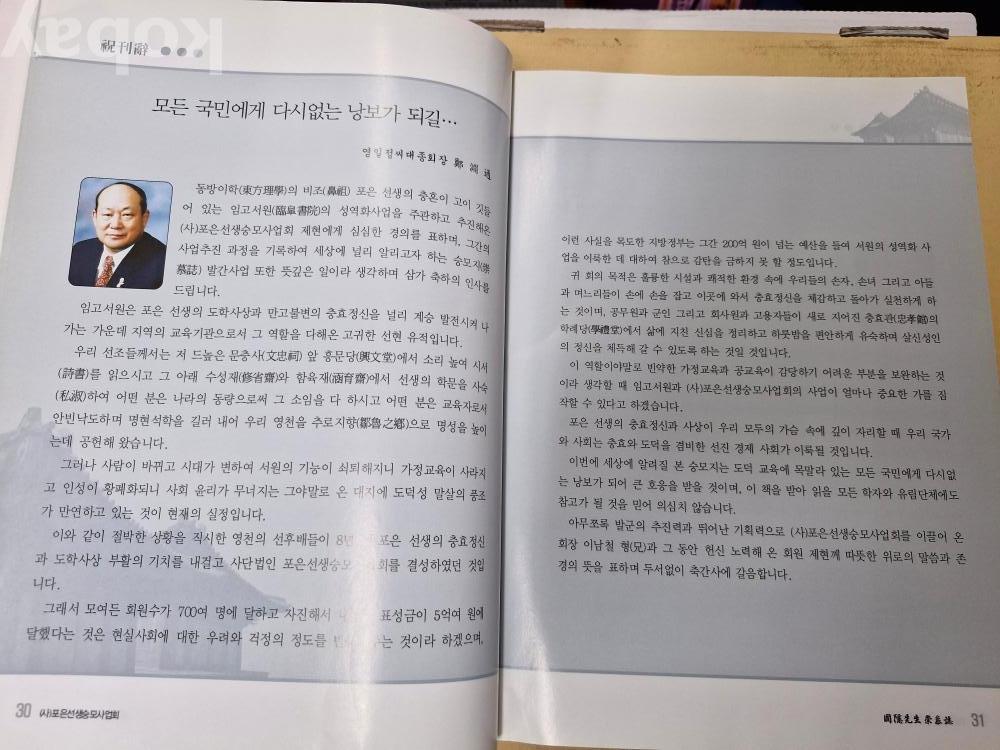 kobay
祝刊辭
모든 국민에게 다시없는 낭보가 되길…
영일정씨대종회장 鄭
동방이학(東方理學)의 비조(鼻祖) 포은 선생의 충혼이 고이 깃들
어 있는 임고서원(臨皐書院)의 성역화사업을 주관하고 추진해온
(사)포은선생숭모사업회 제현에게 심심한 경의를 표하며, 그간의
사업추진 과정을 기록하여 세상에 널리 알리고자 하는 숭모지(崇
慕誌) 발간사업 또한 뜻깊은 일이라 생각하며 삼가 축하의 인사를
드립니다.
임고서원은 포은 선생의 도학사상과 만고불변의 충효정신을 널리 계승 발전시켜 나
가는 가운데 지역의 교육기관으로서 그 역할을 다해온 고귀한 선현 유적입니다.
우리 선조들께서는 저 드높은 문충사(文忠祠) 앞 흥문당(興文堂)에서 소리 높여 시서
(詩書)를 읽으시고 그 아래 수성재(修省齋)와 함육재(涵育齋)에서 선생의 학문을 사숙
(私淑)하여 어떤 분은 나라의 동량으로써 그 소임을 다 하시고 어떤 분은 교육자로서
안빈낙도하며 명현석학을 길러 내어 우리 영천을 추로지향(鄒魯之鄕)으로 명성을 높이
는데 공헌해 왔습니다.
그러나 사람이 바뀌고 시대가 변하여 서원의 기능이 쇠퇴해지니 가정교육이 사라지
고 인성이 황폐화되니 사회 윤리가 무너지는 그야말로 온 대지에 도덕성 말살의 풍조
가 만연하고 있는 것이 현재의 실정입니다.
이와 같이 절박한 상황을 직시한 영천의 선후배들이 8년 포은 선생의 충효정신
과 도학사상 부활의 기치를 내걸고 사단법인 포은선생숭모 회를 결성하였던 것입
니다.
그래서 모여든 회원수가 700여 명에 달하고 자진해서 표성금이 5억여 원에
달했다는 것은 현실사회에 대한 우려와 걱정의 정도를 는 것이라 하겠으며,
30 (사)포은선생숭모사업회
이런 사실을 목도한 지방정부는 그간 200억 원이 넘는 예산을 들여 서원의 성역화 사
업을 이룩한 데 대하여 참으로 감탄을 금하지 못 할 정도입니다.
귀 회의 목적은 훌륭한 시설과 쾌적한 환경 속에 우리들의 손자, 손녀 그리고 아들
과 며느리들이 손에 손을 잡고 이곳에 와서 충효정신을 체감하고 돌아가 실천하게 하
는 것이며, 공무원과 군인 그리고 회사원과 고용자들이 새로 지어진 충효관(忠孝館)의
학례당(學禮堂)에서 삶에 지친 심신을 정리하고 하룻밤을 편안하게 유숙하며 살신성인
의 정신을 체득해 갈 수 있도록 하는 것일 것입니다.
이 역할이야말로 빈약한 가정교육과 공교육이 감당하기 어려운 부분을 보완하는 것
이라 생각할 때 임고서원과 (사)포은선생숭모사업회의 사업이 얼마나 중요한 가를 짐
작할 수 있다고 하겠습니다.
포은 선생의 충효정신과 사상이 우리 모두의 가슴 속에 깊이 자리할 때 우리 국가
와 사회는 충효와 도덕을 겸비한 선진 경제 사회가 이룩될 것입니다.
이번에 세상에 알려질 본 숭모지는 도덕 교육에 목말라 있는 모든 국민에게 다시없
는 낭보가 되어 큰 호응을 받을 것이며, 이 책을 받아 읽을 모든 학자와 유림단체에도
참고가 될 것을 믿어 의심치 않습니다.
아무쪼록 발군의 추진력과 뛰어난 기획력으로 (사)포은선생숭모사업회를 이끌어 온
회장 이남철 형(兄)과 그 동안 헌신 노력해 온 회원 제현께 따뜻한 위로의 말씀과 존
경의 뜻을 표하며 두서없이 축간사에 갈음합니다.
圃隱先生崇慕誌 31